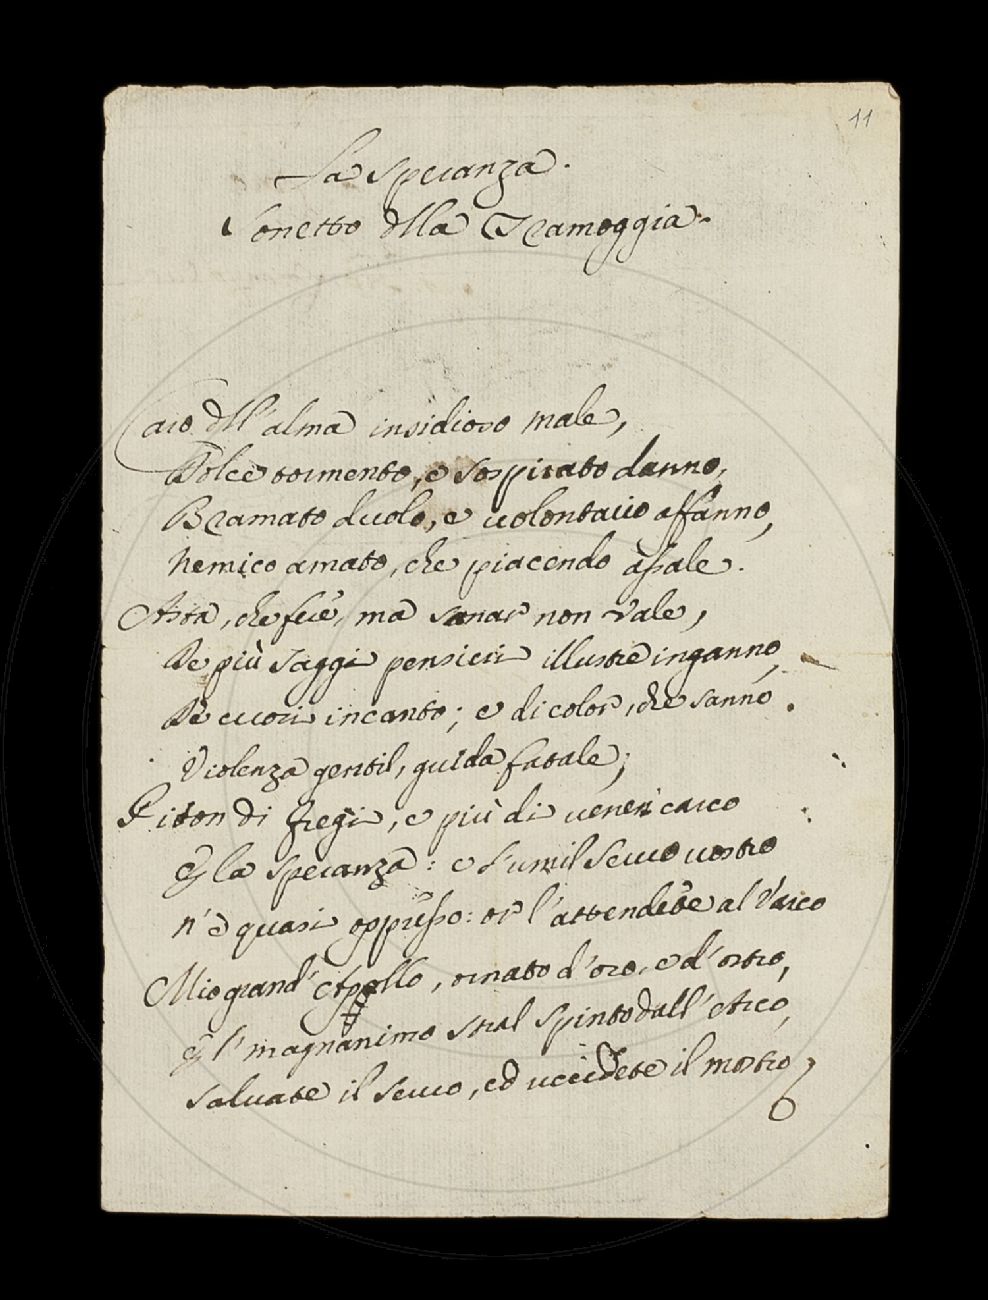 11
La Speranza.
Sonetto dlla Tramoggia.
Caro dll'alma insidioso male,
Dolce tormento, e sospirato danno,
Bramato duolo, e volontario affanno,
Nemico amato, che piacendo assale.
Asta, che ferè, ma sanar non vale,
De più saggi pensieri illustre inganno,
De cuori incanto; e di color, che sanno
Violenza gentil, guida fatale;
Piton di fregi, e più di venen carco
È la speranza: e l'umil servo vostro
n'è quasi oppresso: or l'attendete al varco
Mio grand'Apollo, ornato d'oro, e d'ostro,
E l'magnanimo stral spinto dall'Arco,
salvate il servo, ed uccidete il mostro